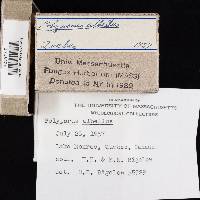 Polyporus albellus
Quebec 1957
Univ. Massachusetts
Fungus Herbarium (MASS)
Donated to NY in 1989
THE UNIVERSITY OF MASSACHUSETTS
MYCOLOGICAL COLLECTION
Polyporus albellus
July 25, 1957
Lake Monroe, Quebec, Canada
H.E. Bigelow
Det. H.E. Bigelow